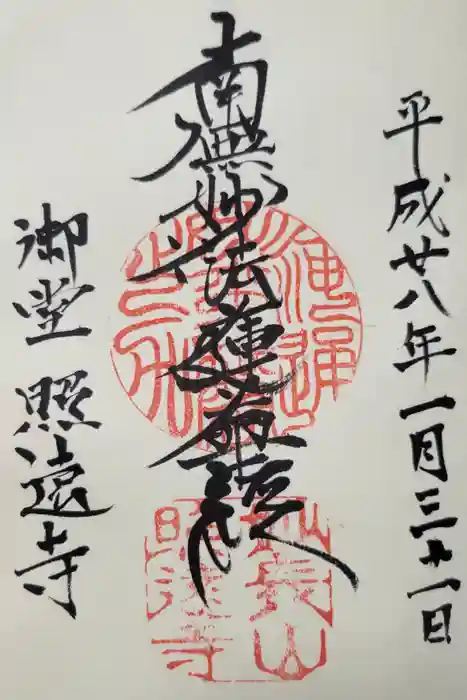 平成廿八年一月三十一日
南無妙法蓮華経
御堂 照遠寺
長山
照遠寺